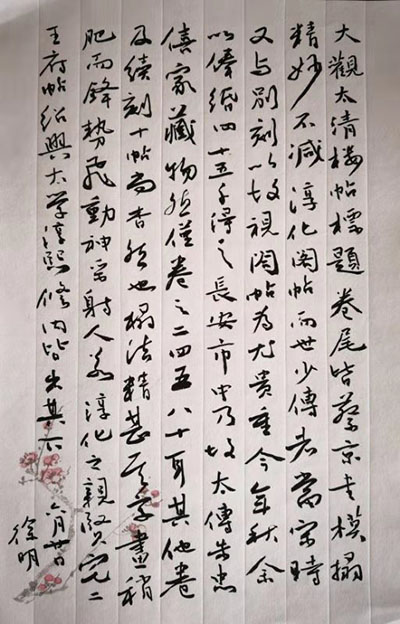 大觀太清楼帖標題卷尾皆蔡京書模搨
精妙不减淳化閣帖而世少傳者當宋時
又与別刻以故視閣帖為尤貴重今年秋余
以俸緡四十五千得之長安市中乃故太傅朱忠
僖家藏物然僅卷之二四五八十耳其他卷
及續刻十帖尚杳然也搨法精甚第字畫稍
肥而鋒勢飛動神采射人若淳化之親賢宅二
王府帖紹興太学淳熙修内皆出其下 六月廿日
徐明